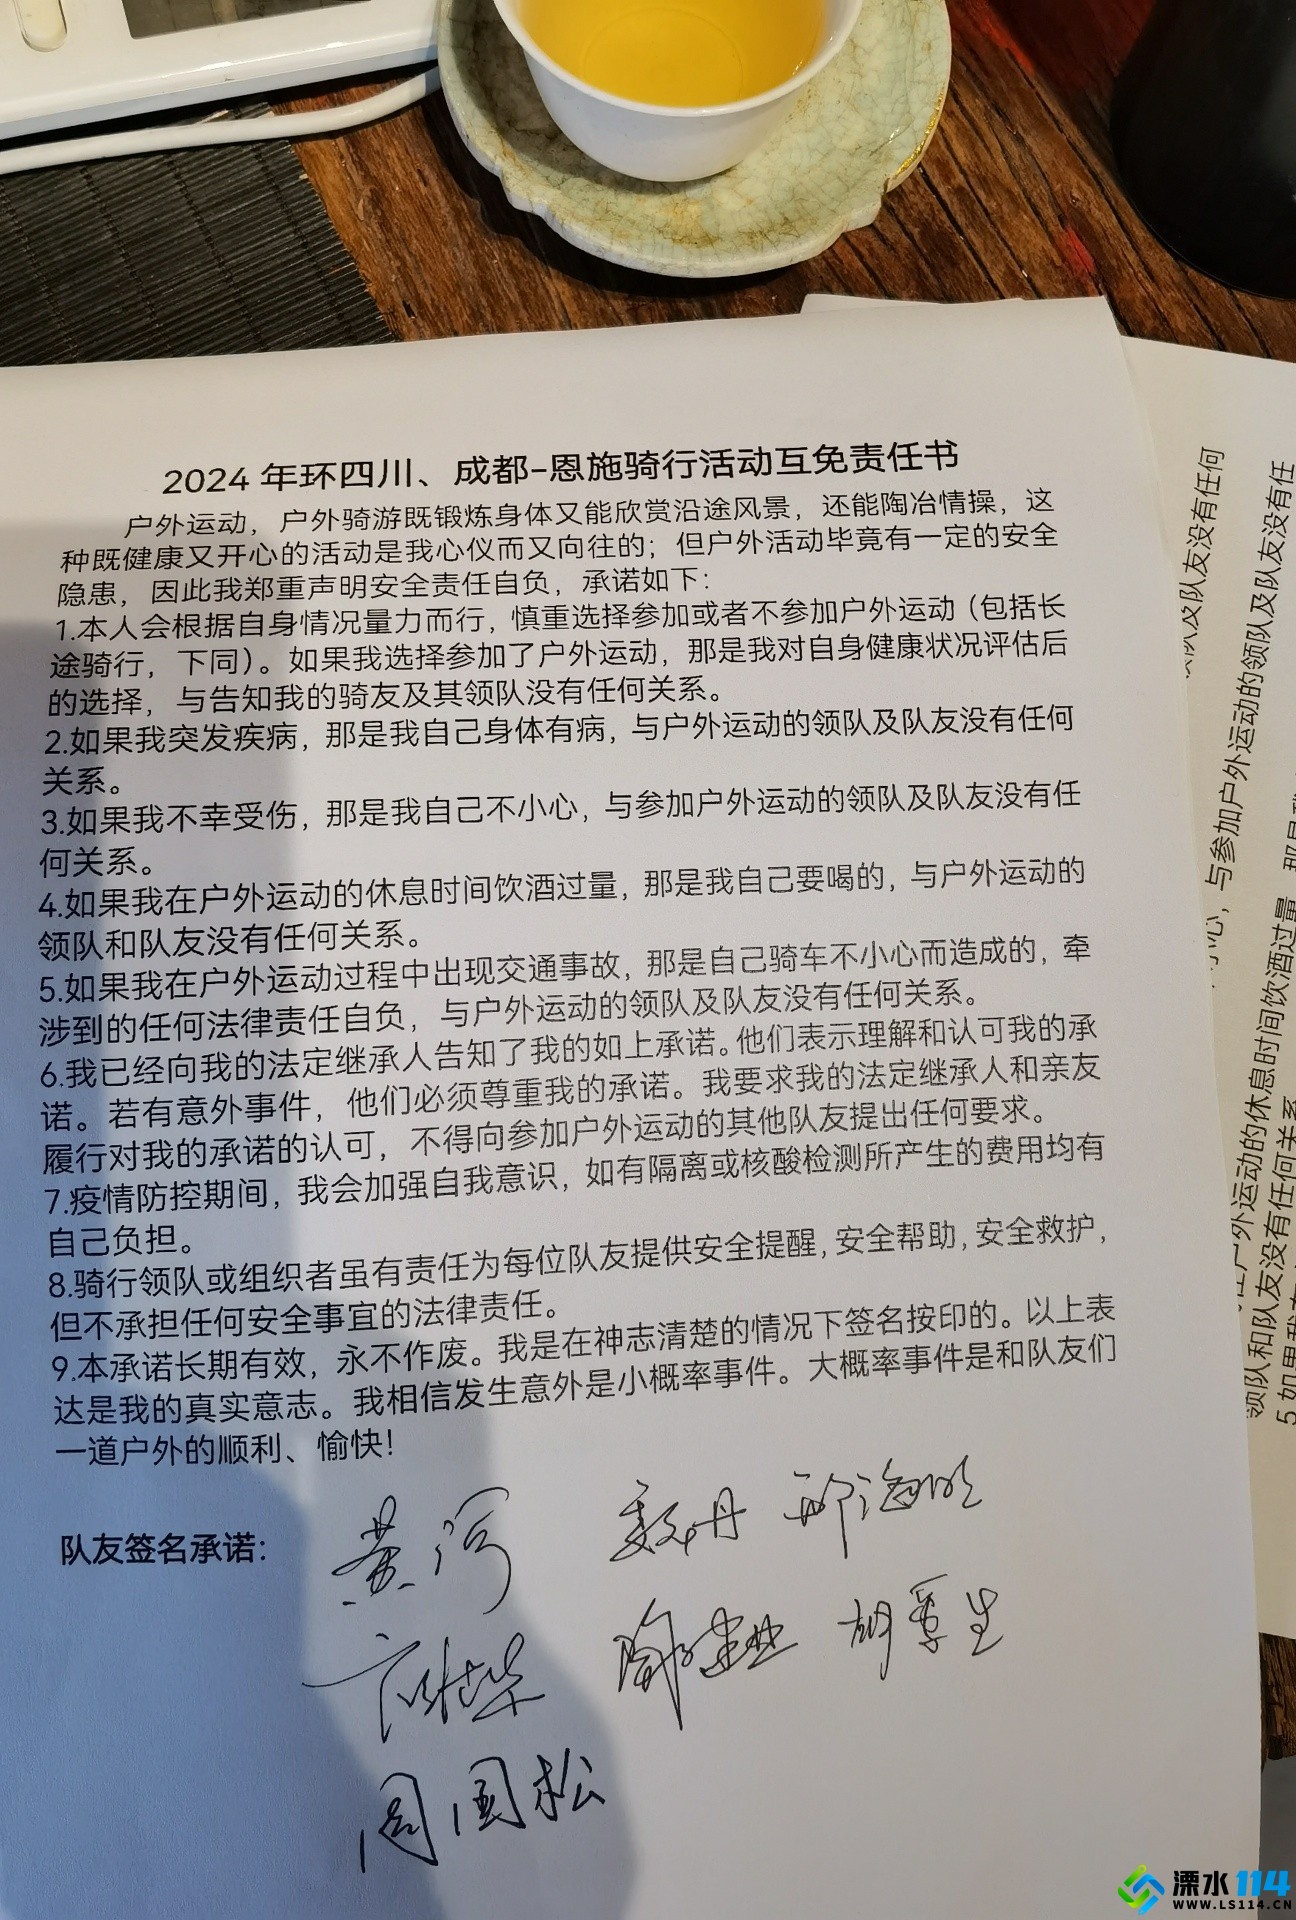 2024 年环四川、成都-恩施骑行活动互免责任书
户外运动，户外骑游既锻炼身体又能欣赏沿途风景，还能陶冶情操，这
种既健康又开心的活动是我心仪而又向往的；但户外活动毕竟有一定的安全
隐患，因此我郑重声明安全责任自负，承诺如下：
1.本人会根据自身情况量力而行，慎重选择参加或者不参加户外运动（包括长
途骑行，下同）。如果我选择参加了户外运动，那是我对自身健康状况评估后
的选择，与告知我的骑友及其领队没有任何关系。
2.如果我突发疾病，那是我自己身体有病，与户外运动的领队及队友没有任何
关系。
3.如果我不幸受伤，那是我自己不小心，与参加户外运动的领队及队友没有任
何关系。
4.如果我在户外运动的休息时间饮酒过量，那是我自己要喝的，与户外运动的
领队和队友没有任何关系。
5.如果我在户外运动过程中出现交通事故，那是自己骑车不小心而造成的，牵
涉到的任何法律责任自负，与户外运动的领队及队友没有任何关系。
6.我已经向我的法定继承人告知了我的如上承诺。他们表示理解和认可我的承
诺。若有意外事件，他们必须尊重我的承诺。我要求我的法定继承人和亲友
履行对我的承诺的认可，不得向参加户外运动的其他队友提出任何要求。
7.疫情防控期间，我会加强自我意识，如有隔离或核酸检测所产生的费用均有
自己负担。
8.骑行领队或组织者虽有责任为每位队友提供安全提醒，安全帮助，安全救护，
但不承担任何安全事宜的法律责任。
9.本承诺长期有效，永不作废。我是在神志清楚的情况下签名按印的。以上表
达是我的真实意志。我相信发生意外是小概率事件。大概率事件是和队友们
一道户外的顺利、愉快！
队友签名承诺：
黄河
周国松
领队及队友没有任何
与参加户外运动的领队及队友没有任
户外运动的休息时间饮酒过量
领队和队友没有任何关系
溧水114
WWW.LS114.CN